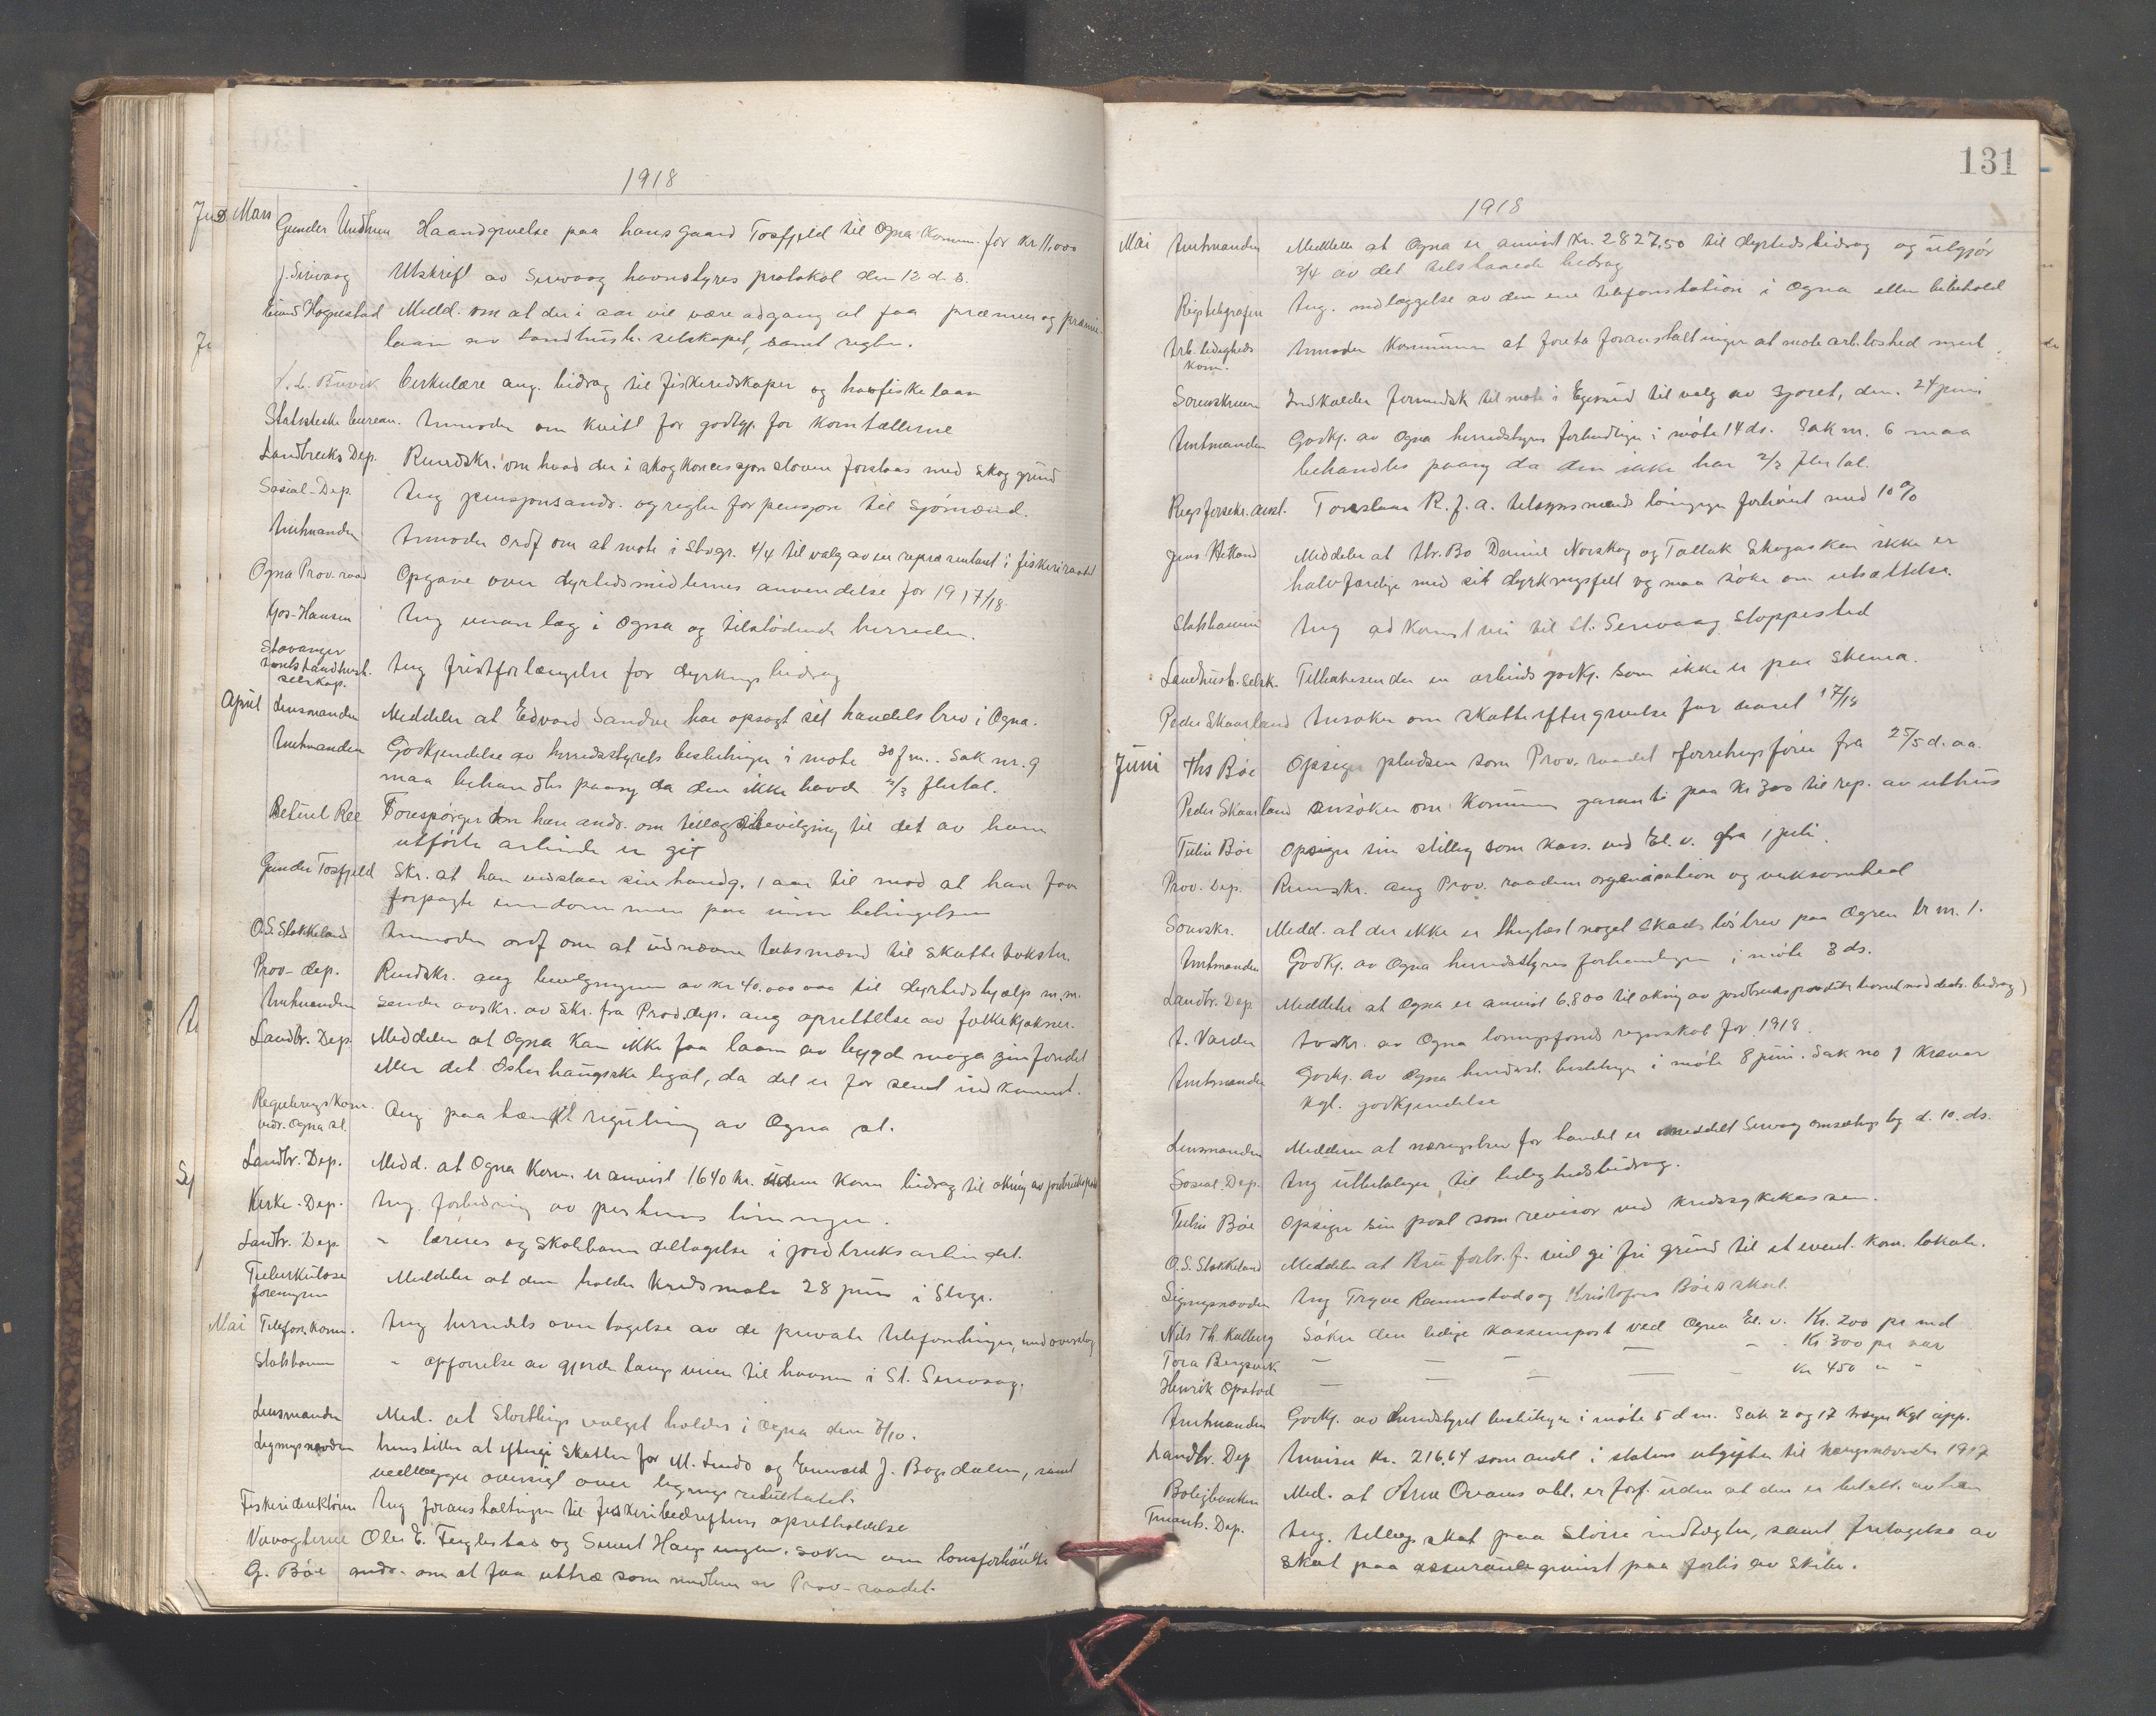 1918
Mars Gunder Undhem Haandgivelse paa hans gaard Tosfjeld til Ogna Komm. for kr 11,000
J. Sirivaag Utskrift av Sirevaag havnestyres protokol den 12 d.s.
Eivind Hognestad Medd. om at der i aar vil være adgang at faa præmier og præmie-
laan av Landhush. selskapet, samt regler.
Cirkulære ang. bidrag til fiskeredskaper og havfiskelaan
Statistiske bureau. Anmoder om kvitt for godtgj. for korntællerne
Landbruks Dep. Rundskr. om hvad der i skogkoncessjonsloven forstaas med skoggrund
Sosial-Dep. Ang pensjonsands. og regler for pensjon til Sjömænd.
Amtmanden Anmoder Ordf om at mote i Stvgr. 4/4 til valg av en repræsentant i fiskeriraadet
Ogna Prov. raad Opgave over dyrtidsmidlernes anvendelse for 1917/18.
Hansen Ang i Ogna og tilstödende herreder.
Stavanger
Amts Landhush.
selskap. Ang fristforlængelse for dyrknings bidrag
April Lensmanden Meddeler at Edvard Sandve har opsagt sit handelsbrev i Ogna.
Amtmanden Godkjendelse av herredsstyrets beslutninger i mote 30 f.m.. Sak nr. 9
maa behandles paany da den ikke havde 2/3 flertal.
Betuel Ree Forespörger om han ands. om tillægsbevilgning til det av ham
utförte arbeide er git
Gunder Tosfjeld Skr. at han vedstaar sin handg. 1 aar til mod at han faar
forpagte eiendommen paa visse betingelser
O.S. Stokkeland Anmoder ordf om at utnævne takstmænd til Skatte takster.
Prov-dep. Rundskr. ang bevilgningen av kr 40.000 000 til dyrtidshjælp m.m.
Amtmanden Sender avskr. av skr. fra Prov.dep. ang oprettelse av folkekjøkner.
Landbr. Dep. Meddeler at Ogna kan ikke faa laan av bygdemagasinfondet
eller det Osterhaugske legat, da det er for sent indkommet.
Reguleringskom.
vedr. Ogna el. Ang paatænkt regulering av Ogna el.
Landbr. Dep. Medd. at Ogna Kom. er anvist 1640 kr. uten kom bidrag til økning av jordbruksprod
Kirke-Dep. Ang. forbedring av presternes lönninger.
Landbr. Dep. " læreres og skolebarns deltagelse i jordbruksarbeidet.
Tuberkulose
foreningen Meddeler at den holder kredsmøte 28 juni i Stvgr.
Mai Telefon Kom. Ang herredets overtagelse av de private telefonlinjer, med overslag
Statsbanen " opförelse av gjerde langs veien til havnen i St. Sirevaag.
Lensmanden Med. at Stortingsvalget holdes i Ogna den
Ligningsnævnden henstiller at eftergi skatten for M. Linds og Emvald J. Bogsdalen, samt
vedlægger oversigt over lignings resultatet.
Fiskeridirektören Ang foranstaltninger til fiskeribedriftens opretholdelse
Veivogterne Ole E. Fuglestad og Sivert Haug søker om lønsforhöielse
G. Böe ands. om at faa uttræ som medlem av Prov-raadet.
131
1918
Mai Amtmanden Meddeler at Ogna er anvist kr. 2827,50 til dyrtidsbidrag og utgjör
3/4 av det tilstaaede bidrag
Rigstelegrafen Ang. nedlæggelse av den ene telefonstation i Ogna eller bibehold
Arb. ledigheds
kom. Anmoder Kommunen at foreta foranstaltninger at møte arb.löshed med
Sorenskriveren Indkalder formandsk til møte i Egersund til valg av 24 juni
Amtmanden Godkj. av Ogna herredsstyres forhandlinger i möte 14 ds. Sak nr. 6 maa
behandles paany da den ikke har 2/3 flertal.
Rigsforsikr. anst. Foreslaar R.f.a. tilsynsmands lönninger forhöiet med 10%
Jens Hetland Meddeler at Daniel og Tallak Skogaskar ikke er
halvfærdige med sit dyrkningsfelt og maa søke om utsættelse.
Statsbanen Ang adkomstvei til St. Sirevaag Stoppested
Landhush. Selsk. Tilbakesender en arbeids godkj. som ikke er paa skema.
Peder Skaarland Ansøker om skatteeftergivelse for aaret 17/18
Juni Ths Böe Opsiger pladsen som Prov. raadet forretningsförer fra 25/5 d. aa.
Peder Skaarland ansöker om Kommunens garanti paa kr 300 til rep. av uthus
Tulin Böe Opsiger sin stilling som kass. ved El.v. fra 1 juli.
Prov. Dep. Rundskr. ang Prov. raadenes organisation og virksomhed
Sorenskr. Medd. at der ikke er thinglæst noget skadeslösbrev paa Ogren br nr. 1.
Amtmanden Godkj. av Ogna herredsstyres forhandlinger i möte 3 ds.
Landbr. Dep. Meddeler at Ogna er anvist 6.800 til økning av jordbruksproduktionen (med distr. bidrag)
A. Varden Avskr. av Ogna regnskab for 1918.
Amtmanden Godkj. av Ogna herredsst. beslutninger i møte 8 juni. Sak no 1 kræver
kgl. godkjendelse
Lensmanden Meddeler at næringsbrev for handel er meddelt Sirevaag omsætnings lag d. 10. ds.
Sosial. Dep. Ang utbetalinger til ledighedsbidrag.
Tulin Böe Opsiger sin post som revisor ved kredssykekassen.
O.S. Stokkeland Meddeler at Bru forbr. f. vil gi fri grund til et event. kom. lokale.
Ligningsnævnden Ang Trygve Rammstads og Kristofer Böes skat.
Nils Th. Kalberg Söker den ledige kassererpost ved Ogna El. v. Kr. 200 pr md
Tora Bergsvik — — — — - . Kr 300 pr aar
Henrik Opstad — — — — - kr 450 " "
Amtmanden Godkj. av herredstyret beslutninger i möte 5 d m. Sak 2 og 17 Kgl app.
Landbr. Dep. Anviser kr. 216.64 som andel i statens utgifter til 1917
Boligbanken Med. at Arne obl. er forf. uden at den er betalt av ham
Finants. Dep. Ang. tillægsskat paa större indtægter, samt fritagelse av
skat paa assurance gevinst paa forlis av skibe.